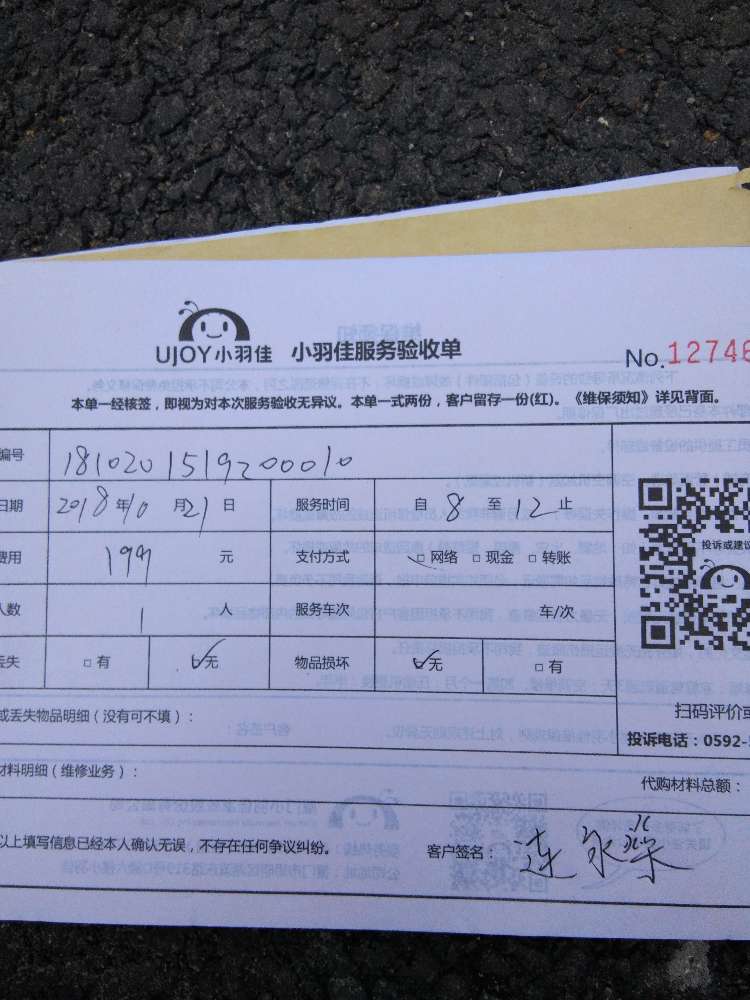 UJOY小羽佳 小羽佳服务验收单
No.12746
本单一经核签，即视为对本次服务验收无异议。本单一式两份，客户留存一份(红)。《维保须知》详见背面。
编号 18102015192000010
日期 2018年10月21日 服务时间 自8至12止
费用 199元 支付方式 □网络 □现金 □转账
人数 1人 服务车次 车/次
丢失 □有 ☑无 物品损坏 ☑无 □有
投诉或建议
扫码评价或
投诉电话：0592-
或丢失物品明细（没有可不填）：
材料明细（维修业务）：
代购材料总额：
以上填写信息已经本人确认无误，不存在任何争议纠纷。
客户签名：连永